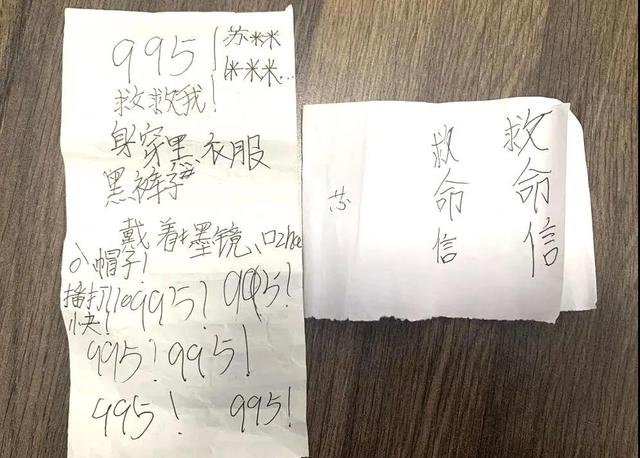 995！苏米米
米米米...
救救我！
身穿黑衣服
黑裤子
戴着墨镜、口zhao
小帽子！
995！995！
播打110
快！
995！995！
995！ 995！
苏
救命信
救命信